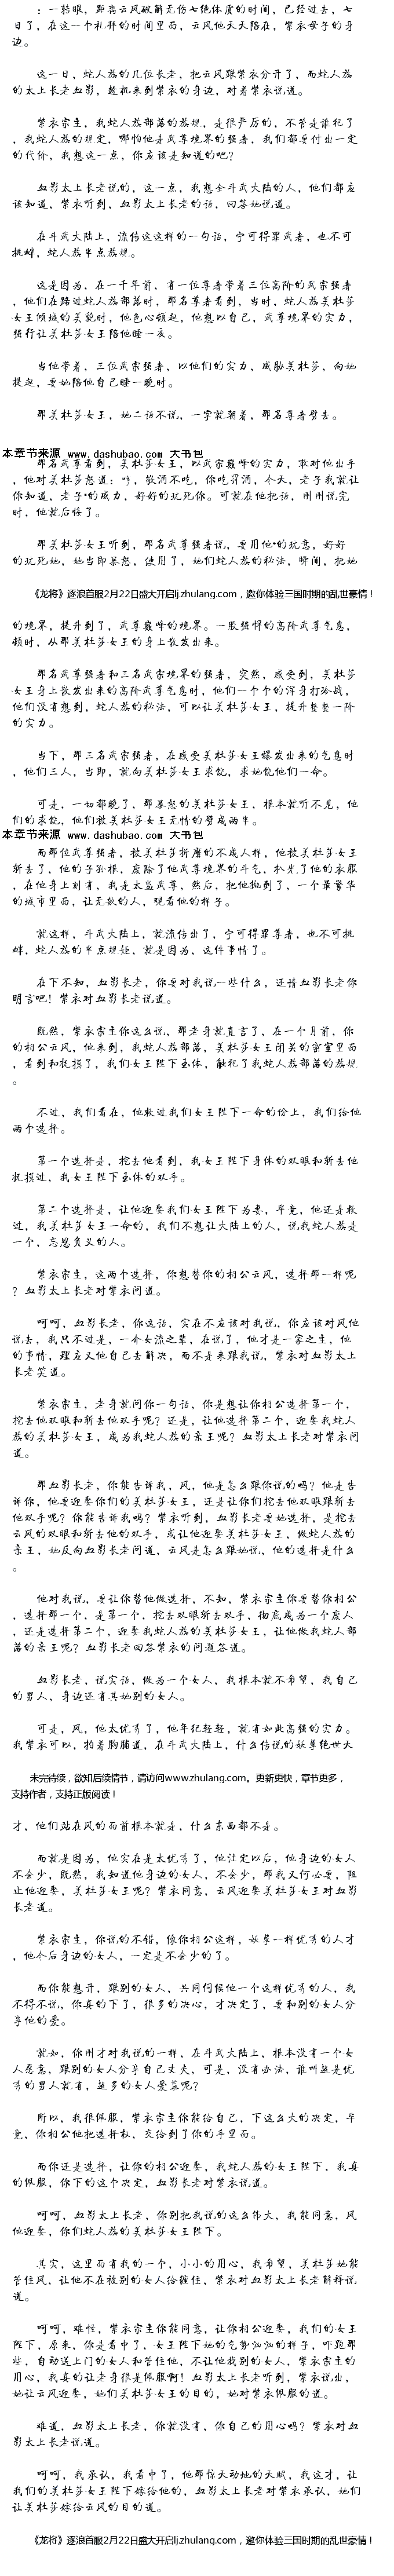 ：一转眼，距离云风破解无伤七绝体质的时间，已经过去，七
日了，在这一个礼拜的时间里面，云风他天天陪在，紫衣母子的身
边。
这一日，蛇人族的几位长老，把云风跟紫衣分开了，而蛇人族
的太上长老血影，趁机来到紫衣的身边，对着紫衣说道。
紫衣宗主，我蛇人族部落的族规，是很严厉的，不管是谁犯了
，我蛇人族的规定，哪怕他是武尊境界的强者，我们都要付出一定
的代价，我想这一点，你应该是知道的吧？
血影太上长老说的，这一点，我想全斗武大陆的人，他们都应
该知道，紫衣听到，血影太上长老的话，回答她说道。
在斗武大陆上，流传这这样的一句话，宁可得罪武者，也不可
挑衅，蛇人族半点族规。
这是因为，在一千年前，有一位尊者带着三位高阶的武宗强者
，他们在路过蛇人族部落时，那名尊者看到，当时，蛇人族美杜莎
女王倾城的美貌时，他色心顿起，他想以自己，武尊境界的实力，
强行让美杜莎女王陪他睡一夜。
当他带着，三位武宗强者，以他们的实力，威胁美杜莎，向她
提起，要她陪他自己睡一晚时。
那美杜莎女王，她二话不说，一掌就朝着，那名尊者劈去。
本章节来源 www.dashubao.com 大书包
那名武尊看到，美杜莎女王，以武宗巅峰的实力，敢对他出手
，他对美杜莎怒道：哼，敬酒不吃，你吃罚酒，今天，老子我就让
你知道，老子*的威力，好好的玩死你。可就在他把话，刚刚说完
时，他就后悔了。
那美杜莎女王听到，那名武尊强者说，要用他*的玩意，好好
的玩死她，她当即暴怒，使用了，她们蛇人族的秘法，瞬间，把她
《龙将》逐浪首服2月22日盛大开启ljzhulang.com，邀你体验三国时期的乱世豪情！
的境界，提升到了，武尊巅峰的境界。一股强悍的高阶武尊气息，
顿时，从那美杜莎女王的身上散发出来。
那名武尊强者和三名武宗境界的强者，突然，感受到，美杜莎
女王身上散发出来的高阶武尊气息时，他们一个个的浑身打冷战，
他们没有想到，蛇人族的秘法，可以让美杜莎女王，提升整整一阶
的实力。
当下，那三名武宗强者，在感受美杜莎女王爆发出来的气息时
，他们三人，当即，就向美杜莎女王求饶，求她饶他们一命。
可是，一切都晚了，那暴怒的美杜莎女王，根本就听不见，他
们的求饶，他们被美杜莎女王无情的劈成两半。
本章节来源 www.dashubao.com 大书包
而那位武尊强者，被美杜莎折磨的不成人样，他被美杜莎女王
斩去了，他的子孙根，废除了他武尊境界的斗气，扒光了他的衣服
，在他身上刻有，我是太监武尊，然后，把他抛到了，一个最繁华
的城市里面，让无数的人，观看他的样子。
就这样，斗武大陆上，就流传出了，宁可得罪尊者，也不可挑
衅，蛇人族的半点规矩，就是因为，这件事情了。
在下不知，血影长老，你要对我说一些什么，还请血影长老你
明言吧！紫衣对血影长老说道。
既然，紫衣宗主你这么说，那老身就直言了，在一个月前，你
的相公云风，他来到，我蛇人族部落，美杜莎女王闭关的密室里面
，看到和抚摸了，我们女王陛下玉体，触犯了我蛇人族部落的族规
。
不过，我们看在，他救过我们女王陛下一命的份上，我们给他
两个选择。
第一个选择是，挖去他看到，我女王陛下身体的双眼和斩去他
抚摸过，我女王陛下玉体的双手。
第二个选择是，让他迎娶我们女王陛下为妻，毕竟，他还是救
过，我美杜莎女王一命的，我们不想让大陆上的人，说我蛇人族是
一个，忘恩负义的人。
紫衣宗主，这两个选择，你想替你的相公云风，选择那一样呢
？血影太上长老对紫衣问道。
呵呵，血影长老，你这话，实在不应该对我说，你应该对风他
说去，我只不过是，一介女流之辈，在说了，他才是一家之主，他
的事情，理应又他自己去解决，而不是来跟我说，紫衣对血影太上
长老笑道。
紫衣宗主，老身就问你一句话，你是想让你相公选择第一个，
挖去他双眼和斩去他双手呢？还是，让他选择第二个，迎娶我蛇人
族的美杜莎女王，成为我蛇人族的亲王呢？血影太上长老对紫衣问
道。
那血影长老，你能告诉我，风，他是怎么跟你说的吗？他是告
诉你，他要迎娶你们的美杜莎女王，还是让你们挖去他双眼跟斩去
他双手呢？你能告诉我吗？紫衣听到，血影长老要她选择，是挖去
云风的双眼和斩去他的双手，或让他迎娶美杜莎女王，做蛇人族的
亲王，她反向血影长老问道，云风是怎么跟她说，他的选择是什么
。
他对我说，要让你替他做选择，不知，紫衣宗主你要替你相公
，选择那一个，是第一个，挖去双眼斩去双手，彻底成为一个废人
，还是选择第二个，迎娶我蛇人族的美杜莎女王，让他做我蛇人部
落的亲王呢？血影长老回答紫衣的问道答道。
血影长老，说实话，做为一个女人，我根本就不希望，我自己
的男人，身边还有其她别的女人。
可是，风，他太优秀了，他年纪轻轻，就有如此高强的实力。
我紫衣可以，拍着胸脯道，在斗武大陆上，什么传说的妖孽绝世天
未完待续，欲知后续情节，请访问www.zhulang.com。更新更快，章节更多，
支持作者，支持正版阅读！
才，他们站在风的面前根本就是，什么东西都不是。
而就是因为，他实在是太优秀了，他注定以后，他身边的女人
不会少，既然，我知道他身边的女人，不会少，那我又何必要，阻
止他迎娶，美杜莎女王呢？紫衣同意，云风迎娶美杜莎女王对血影
长老道。
紫衣宗主，你说的不错，像你相公这样，妖孽一样优秀的人才
，他今后身边的女人，一定是不会少的了。
而你能想开，跟别的女人，共同伺候他一个这样优秀的人，我
不得不说，你真的下了，很多的决心，才决定了，要和别的女人分
享他的爱。
就如，你刚才对我说的一样，在斗武大陆上，根本没有一个女
人愿意，跟别的女人分享自己丈夫，可是，没有办法，谁叫越是优
秀的男人就有，越多的女人爱慕呢？
所以，我很佩服，紫衣宗主你能给自己，下这么大的决定，毕
竟，你相公他把选择权，交给到了你的手里面。
而你还是选择，让你的相公迎娶，我蛇人族的女王陛下，我真
的佩服，你下的这个决定，血影长老对紫衣说道。
呵呵，血影太上长老，你别把我说的这么伟大，我能同意，风
他迎娶，你们蛇人族的美杜莎女王陛下。
其实，这里面有我的一个，小小的用心，我希望，美杜莎她能
管住风，让他不在被别的女人给缠住，紫衣对血影太上长老解释说
道。
呵呵，难怪，紫衣宗主你能同意，让你相公迎娶，我们的女王
陛下，原来，你是看中了，女王陛下她的气势汹汹的样子，吓跑那
些，自动送上门的女人和管住他，不让他找别的女人，紫衣宗主的
用心，我真的让老身很是佩服啊！血影太上长老听到，紫衣说出，
她让云风迎娶，她们美杜莎女王的目的，她对紫衣佩服的道。
难道，血影太上长老，你就没有，你自己的用心吗？紫衣对血
影太上长老说道。
呵呵，我承认，我看中了，他那惊天动地的天赋，我这才，让
我们的美杜莎女王陛下嫁给他的，血影太上长老对紫衣承认，她们
让美杜莎嫁给云风的目的道。
《龙将》逐浪首服2月22日盛大开启ljzhulang.com，邀你体验三国时期的乱世豪情！